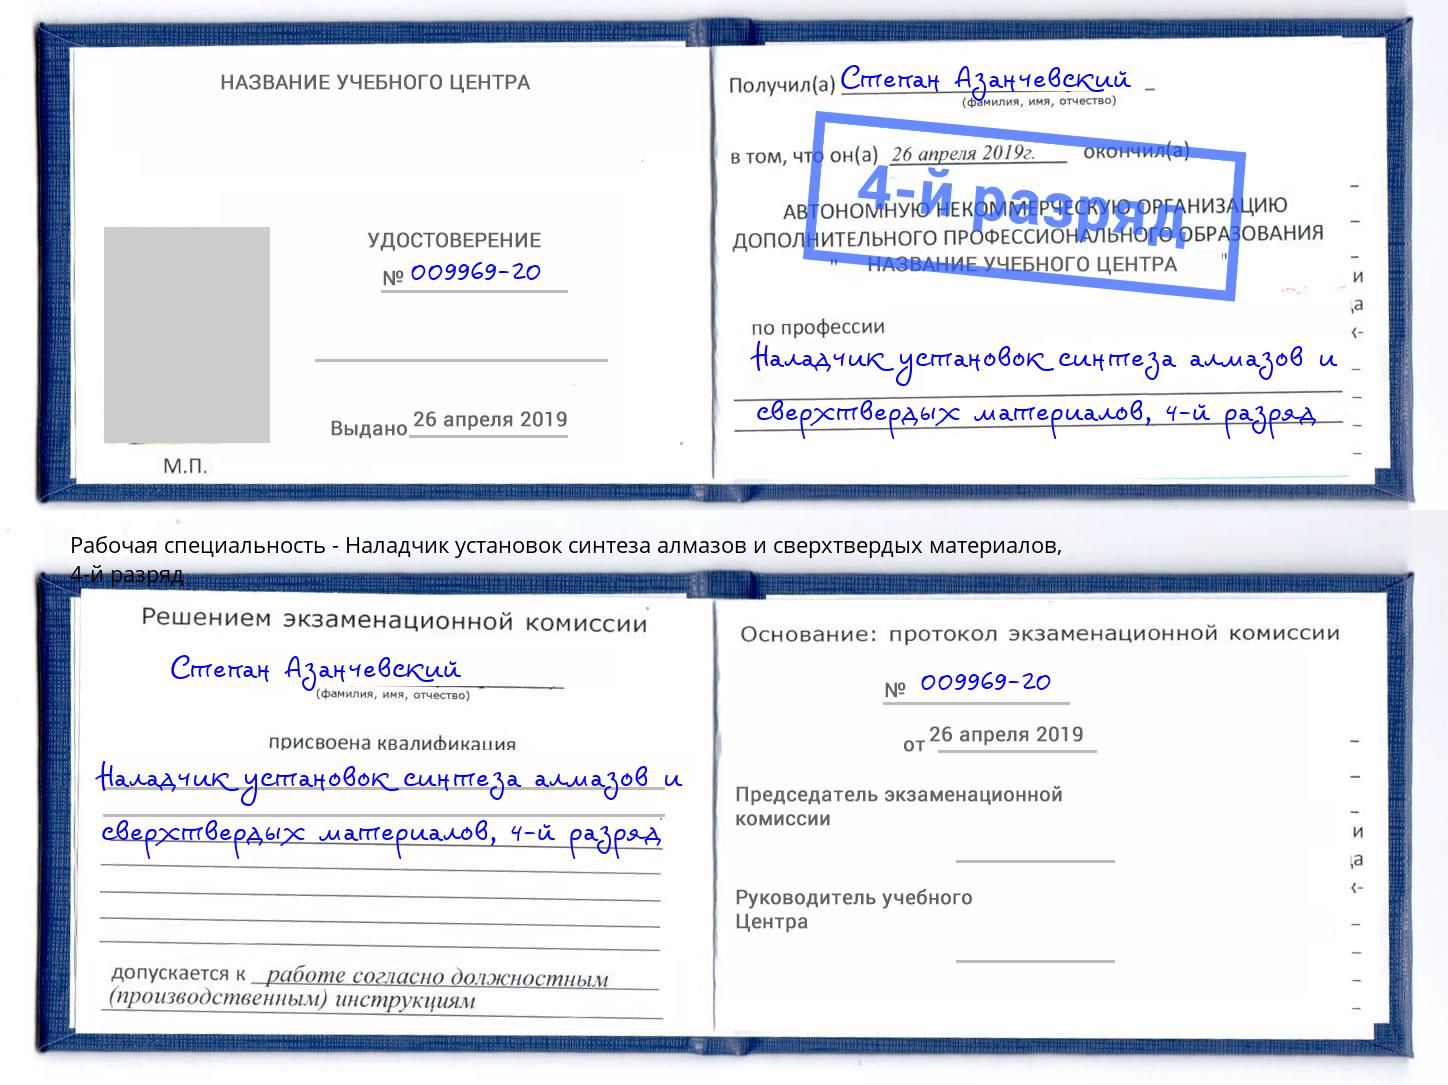 НАЗВАНИЕ УЧЕБНОГО ЦЕНТРА
УДОСТОВЕРЕНИЕ
№ 009969-20
Выдано 26 апреля 2019
М.П.
Получил(а) Степан Азанчевский
(фамилия, имя, отчество)
в том, что он(а) 26 апреля 2019г. окончил(а)
4-й разряд
АВТОНОМНУЮ НЕКОММЕРЧЕСКУЮ ОРГАНИЗАЦИЮ
ДОПОЛНИТЕЛЬНОГО ПРОФЕССИОНАЛЬНОГО ОБРАЗОВАНИЯ
" НАЗВАНИЕ УЧЕБНОГО ЦЕНТРА "
по профессии
Наладчик установок синтеза алмазов и
сверхтвердых материалов, 4-й разряд
Рабочая специальность - Наладчик установок синтеза алмазов и сверхтвердых материалов,
4-й разряд
Решением экзаменационной комиссии
Степан Азанчевский
(фамилия, имя, отчество)
присвоена квалификация
Наладчик установок синтеза алмазов и
сверхтвердых материалов, 4-й разряд
допускается к работе согласно должностным
(производственным) инструкциям
Основание: протокол экзаменационной комиссии
№ 009969-20
от 26 апреля 2019
Председатель экзаменационной
комиссии
Руководитель учебного
Центра